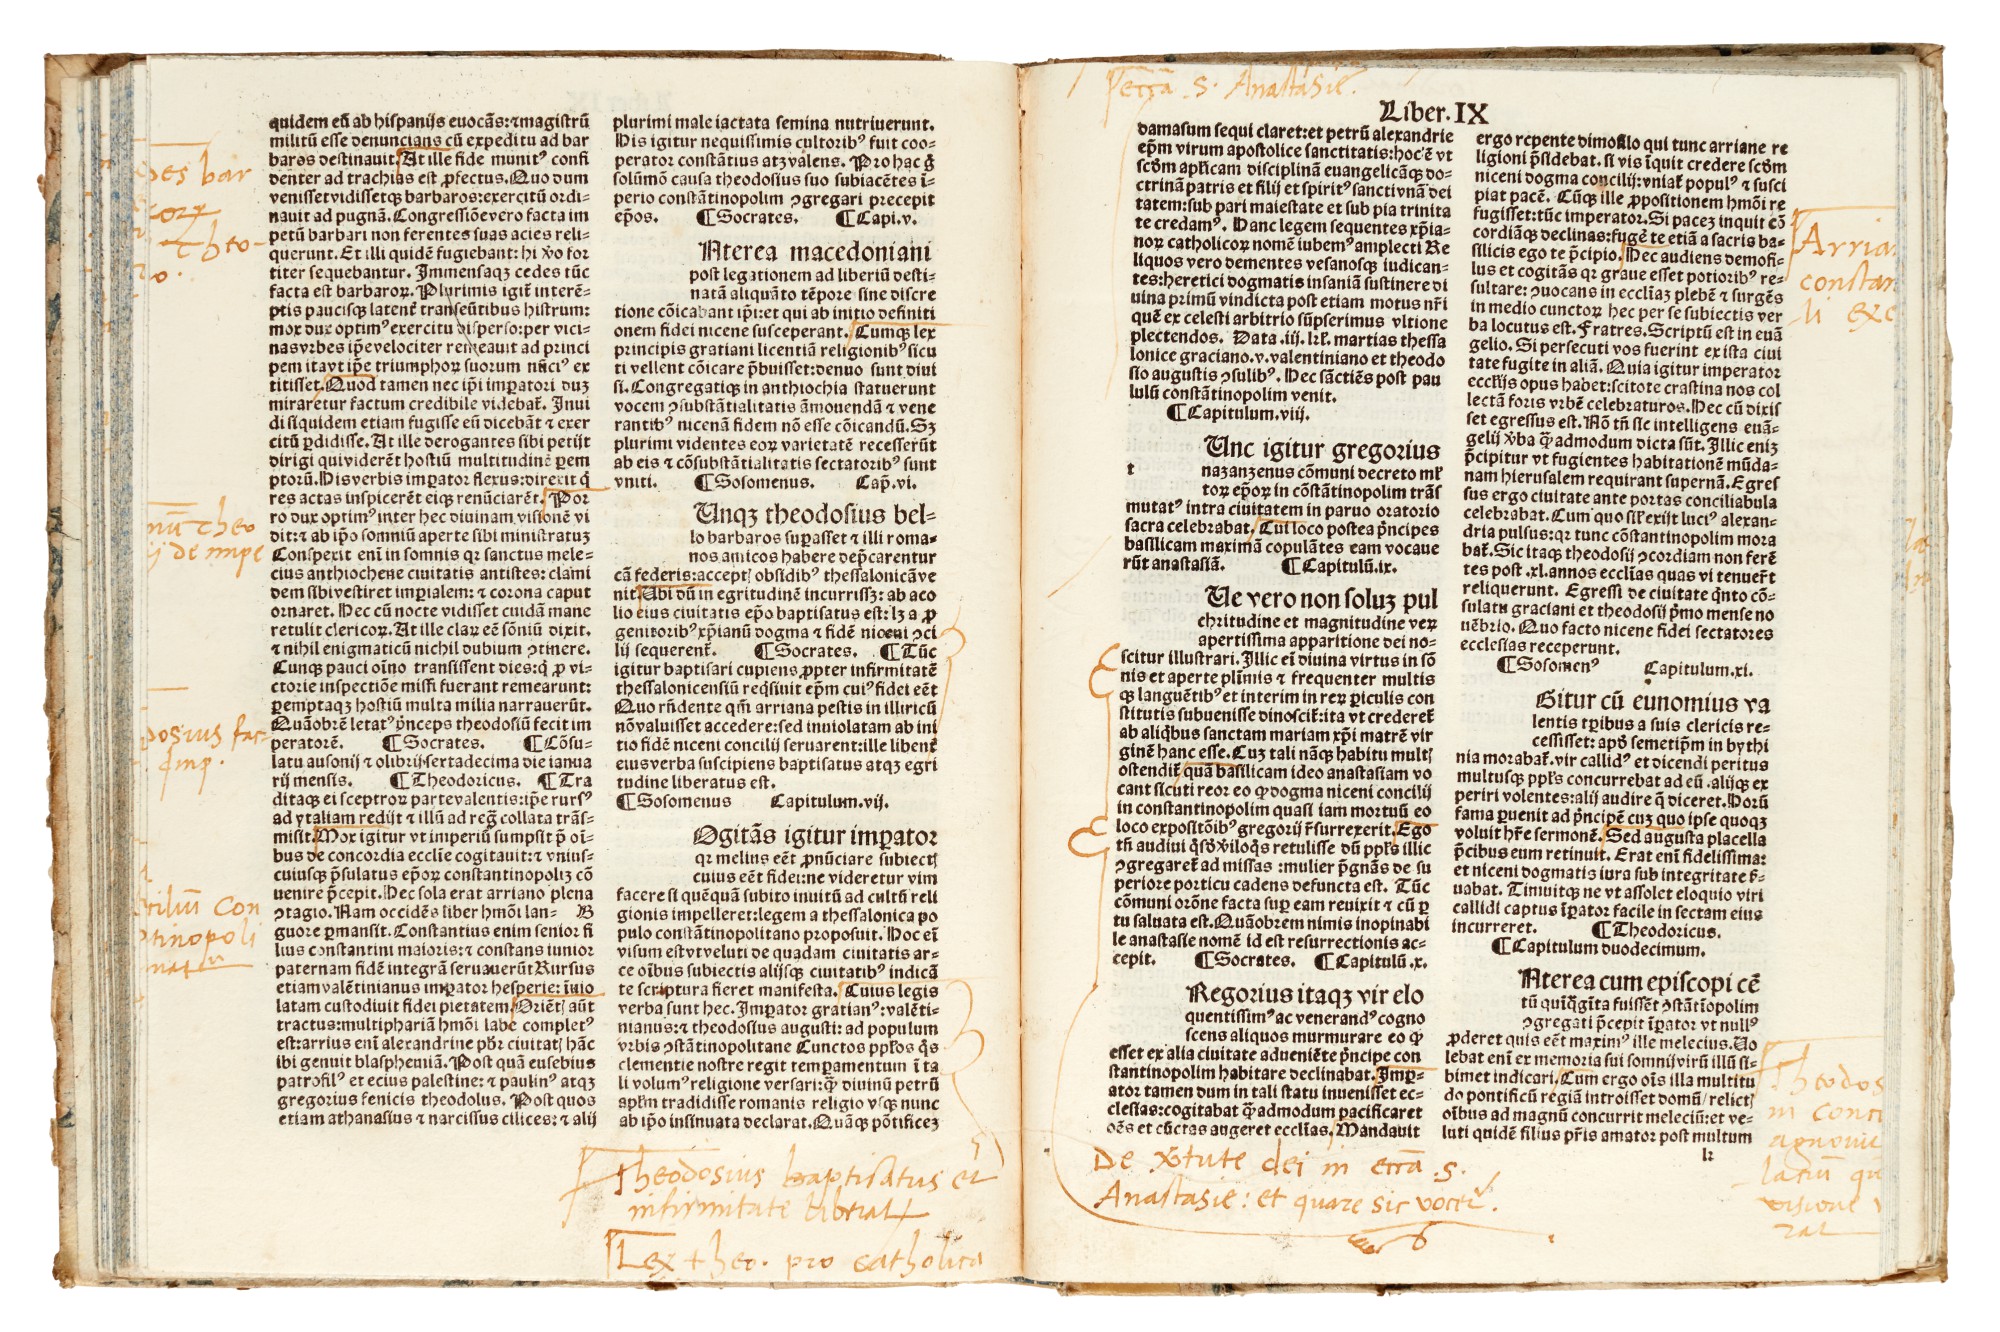 quidem eũ ab hispanijs euocãs: ⁊ magistrũ
militũ esse denuncians cũ expeditu ad bar
baros destinauit. At ille fide munitꝰ confi
denter ad trachias est ꝓfectus. Quo dum
venisset vidissetqꝫ barbaros: exercitũ ordi-
nauit ad pugnã. Congressiõe vero facta im
petũ barbari non ferentes suas acies reli-
querunt. Et illi quidẽ fugiebant: hi ꝟo for
titer sequebantur. Jmmensaqꝫ cedes tũc
facta est barbaroꝝ. Plurimis igit̃ interẽ-
ptis paucisqꝫ latent̃ transeũtibus histrum:
mox dux optimꝰ exercitu disperso: per vici-
nas vrbes ip̃e velociter remeauit ad princi
pem ita vt ip̃e triumphoꝝ suorum nũciꝰ ex
titisset. Quod tamen nec ip̃i imꝑatori duꝫ
miraretur factum credibile videbat̃. Jnui
di siquidem etiam fugisse eũ dicebãt ⁊ exer
citũ ꝑdidisse. At ille derogantes sibi petijt
dirigi qui viderẽt hostiũ multitudinẽ ꝑem
ptorũ. His verbis imꝑator flexus: direxit q̃
res actas inspicerẽt eiqꝫ renũciarẽt. Por
ro dux optimꝰ inter hec diuinam visionẽ vi
dit: ⁊ ab ip̃o somniũ aperte sibi ministratuꝫ
Conspexit eni in somnis qꝛ sanctus mele-
cius anthiochene ciuitatis antistes: clami
dem sibi vestiret imꝑialem: ⁊ corona caput
ornaret. Hec cũ nocte vidisset cuidã mane
retulit clericoꝝ. At ille claꝝ eẽ sõniũ dixit.
⁊ nihil enigmaticũ nichil dubium ꝯtinere.
Cunqꝫ pauci oĩno transissent dies: q̃ ꝓ vi-
ctorie inspectiõe missi fuerant remearunt:
ꝑemptaqꝫ hostiũ multa milia narrauerũt.
Quãobrẽ letatꝰ p̃nceps theodosiũ fecit im
peratorẽ. ¶Socrates. ¶Cõsu-
latu ausonij ⁊ olibrij sertadecima die ianua
rij mensis. ¶Theodoricus. ¶Tra
ditaqꝫ ei sceptroꝝ parte valentis: ip̃e rursꝰ
ad ytaliam redijt ⁊ illũ ad reg̃ collata trãs-
misit. Mox igitur vt imperiũ sumpsit p̃ oĩ-
bus de concordia ecclĩe cogitauit: ⁊ vnius-
cuiusqꝫ p̃sulatus epõꝝ constantinopolíꝫ cõ
uenire p̃cepit. Hec sola erat arriano plena
ꝯtagio. Nam occidẽs liber hmõi lan- B
guore ꝑmansit. Constantius enim senior fi
lius constantini maioris: ⁊ constans iunior
paternam fidẽ integrã seruauerũt Rursus
etiam valẽtinianus imꝑator hesperie: ĩuio
latam custodiuit fidei pietatem. Oriẽs aũt
tractus: multiphariã hmõi labe completꝰ
est: arrius eni alexandrine pb̃r ciuitatꝭ hãc
ibi genuit blasphemiã. Post quã eusebius
patrofilꝰ et ecius palestine: ⁊ paulinꝰ atqꝫ
gregorius fenicis theodolus. Post quos
etiam athanasius ⁊ narcissus cilices: ⁊ alij
plurimi male iactata semina nutriuerunt.
His igitur nequissimis cultoribꝰ fuit coo-
perator constãtius atqꝫ valens. Pro hac g̃
solũmõ causa theodosius suo subiacẽtes ĩ-
perio constãtinopolim ꝯgregari precepit
ep̃os. ¶Socrates. ¶Capi. v.
Nterea macedoniani
post legationem ad liberiũ desti-
natã aliquãto tẽpore sine discre
tione cõicabant ip̃i: et qui ab initio definiti
onem fidei nicene susceperant. Cumqꝫ lex
principis gratiani licentiã religionibꝰ sicu
ti vellent cõicare p̃buisset: denuo sunt diui
si. Congregatiqꝫ in anthiochia statuerunt
vocem ꝯsubstãtialitatis ãmouendã ⁊ vene
rantibꝰ nicenã fidem nõ esse cõicandũ. Sꝫ
plurimi videntes eoꝝ varietatẽ recesserũt
ab eis ⁊ cõsubstãtialitatis sectatoribꝰ sunt
vniti. ¶Sosomenus. Cap̃. vi.
Unqꝫ theodosius bel-
lo barbaros suꝑasset ⁊ illi roma-
nos amicos habere dep̃carentur
cã federis: acceptꝭ obsidibꝰ thessalonicã ve
nit. Ubi dũ in egritudinẽ incurrissꝫ: ab aco
lio eius ciuitatis ep̃o baptisatus est: lꝫ a ꝓ
genitoribꝰ xp̃ianũ dogma ⁊ fidẽ niceni ꝯci
lij sequerent̃. ¶Socrates. ¶Tũc
igitur baptisari cupiens ꝓpter infirmitatẽ
thessalonicensiũ req̃siuit ep̃m cuiꝰ fidei eẽt
Quo rñdente qm̃ arriana pestis in illiricũ
nõ valuisset accedere: sed inuiolatam ab ini
tio fidẽ niceni concilij seruarent: ille libent̃
eius verba suscipiens baptisatus atqꝫ egri
tudine liberatus est.
¶Sosomenus Capitulum. vij.
Ogitãs igitur imꝑator
qꝛ melius eẽt ꝓnũciare subiectꝭ
cuius eẽt fidei: ne videretur vim
facere si quẽquã subito inuitũ ad cultũ reli
gionis impelleret: legem a thessalonica po
pulo constãtinopolitano proposuit. Hoc eñ
visum est vt veluti de quadam ciuitatis ar-
ce oĩbus subiectis alijsqꝫ ciuitatibꝰ indicã
te scriptura fieret manifesta. Cuius legis
verba sunt hec. Jmperator gratianꝰ: valẽti-
nianus: ⁊ theodosius augusti: ad populum
vrbis ꝯstãtinopolitane Cunctos pp̃los q̃s
clementie nostre regit temꝑamentum ĩ ta
li volumꝰ religione versari: q̃ diuinũ petrũ
ap̃lm tradidisse romanis religio vsqꝫ nunc
ab ip̃o insinuata declarat. Quãqꝫ põtificeꝫ
Theodosius baptisatus et
infirmitate liberat
Lex theo. pro catholica
ecc̃a S. Anastasie.
Liber. IX
damasum sequi claret: et petrũ alexandrie
ep̃m virum apostolice sanctitatis: hoc ẽ vt
scd̃m ap̃licam disciplinã euangelicãqꝫ do-
ctrinã patris et filij et spiritꝰ sancti vnã dei
tatem: sub pari maiestate et sub pia trinita
te credamꝰ. Hanc legem sequentes xp̃ia-
noꝝ catholicoꝝ nomẽ iubemꝰ amplecti Re
liquos vero dementes vesanosqꝫ iudican-
tes: heretici dogmatis insaniã sustinere di
uina primũ vindicta post etiam motus nr̃i
quẽ ex celesti arbitrio sũpserimus vltione
plectendos. Data. iij. kl̃. martias thessa
lonice graciano. v. valentiniano et theodo
sio augustis ꝯsulibꝰ. Hec sãctiẽs post pau
lulũ constãtinopolim venit.
¶Capitulum. viij.
t
Unc igitur gregorius
nazanzenus cõmuni decreto ml̃
toꝝ ep̃oꝝ in cõstãtinopolim trãs
mutatꝰ intra ciuitatem in paruo oratorio
sacra celebrabat. Cui loco postea p̃ncipes
basilicam maximã copulãtes eam vocaue
rũt anastasiã. ¶Capitulũ. ix.
Ue vero non soluꝫ pul
chritudine et magnitudine veꝝ
apertissima apparitione dei no-
scitur illustrari. Jllic eñ diuina virtus in sõ
nis et aperte plĩmis ⁊ frequenter multis
qꝫ languẽtibꝰ et interim in reꝝ ꝑiculis con
stitutis subuenisse dinoscit̃: ita vt crederet̃
ab aliq̃bus sanctam mariam xp̃i matrẽ vir
ginẽ hanc esse. Cuꝫ tali nãqꝫ habitu multꝭ
ostendit̃ quã basilicam ideo anastasiam vo
cant sicuti reor eo ꝙ dogma niceni concilij
in constantinopolim quasi iam mortuũ eo
loco expositõibꝰ gregorij r̃surrexerit. Ego
tñ audiui q̃sdã veriloq̃s retulisse dũ pp̃ls illic
ꝯgregaret̃ ad missas: mulier p̃gnãs de su
periore porticu cadens defuncta est. Tũc
cõmuni orõne facta suꝑ eam reuixit ⁊ cũ ꝑ
tu saluata est. Quãobrem nimis inopinabi
le anastasie nomẽ id est resurrectionis ac-
cepit. ¶Socrates. ¶Capitulũ. x.
Regorius itaqꝫ vir elo
quentissimꝰ ac venerandꝰ cogno
scens aliquos murmurare eo ꝙ
esset ex alia ciuitate adueniẽte p̃ncipe con
stantinopolim habitare declinabat. Jmꝑ-
ator tamen dum in tali statu inuenisset ec-
clesias: cogitabat q̃ admodum pacificaret
oẽs et cũctas augeret ecclĩas. Mandauit
ergo repente dimofilo qui tunc arriane re
ligioni p̃sidebat. si vis ĩquit credere scd̃m
niceni dogma concilij: vniat̃ populꝰ ⁊ susci
piat pacẽ. Cũqꝫ ille ꝓpositionem hmõi re
fugisset: tũc imperator. Si paceꝫ inquit cõ
cordiãqꝫ declinas: fugẽ te etiã a sacris ba-
silicis ego te p̃cipio. Hec audiens demofi-
lus et cogitãs qꝛ graue esset potioribꝰ re-
sultare: ꝯuocans in ecclĩaꝫ plebẽ ⁊ surgẽs
in medio cunctoꝝ hec per se subiectis ver
ba locutus est. Fratres. Scriptũ est in euã
gelio. Si persecuti vos fuerint ex ista ciui
tate fugite in aliã. Quia igitur imperator
ecclĩjs opus habet: scitote crastina nos col
lectã foris vrbẽ celebraturos. Hec cũ dixis
set egressus est. Nõ tñ sic intelligens euã-
gelij ꝟba q̃ admodum dicta sũt. Jllic eniꝫ
p̃cipitur vt fugientes habitationẽ mũda-
nam hierusalem requirant supernã. Egres
sus ergo ciuitate ante portas conciliabula
celebrabat. Cum quo sil̃ exijt luciꝰ alexan-
dria pulsus: qꝛ tunc cõstantinopolim mora
bat̃. Sic itaqꝫ theodosij ꝯcordiam non ferẽ
tes post. xl. annos ecclĩas quas vi tenuer̃t
reliquerunt. Egressi de ciuitate q̃nto cõ-
sulatu graciani et theodosij p̃mo mense no
uẽbrio. Quo facto nicene fidei sectatores
ecclesias receperunt.
¶Sosomenꝰ Capitulum. xi.
Gitur cũ eunomius va
lentis tꝑibus a suis clericis re-
cessisset: apd̃ semetip̃m in bythi
nia morabat̃. vir callidꝰ et dicendi peritus
multusqꝫ pp̃ls concurrebat ad eũ. alijqꝫ ex
periri volentes: alij audire q̃ diceret. Horũ
fama ꝑuenit ad p̃ncipẽ cuꝫ quo ipse quoqꝫ
voluit hr̃e sermonẽ. Sed augusta placella
p̃cibus eum retinuit. Erat eni fidelissima:
et niceni dogmatis iura sub integritate ẽ-
uabat. Timuitqꝫ ne vt assolet eloquio viri
callidi captus ĩꝑator facile in sectam eius
incurreret. ¶Theodoricus.
¶Capitulum duodecimum.
Nterea cum episcopi cẽ
tũ quĩq̃gĩta fuissẽt ꝯstãtĩopolim
ꝯgregati p̃cepit ĩꝑator vt nullꝰ
ꝓderet quis eẽt maximꝰ ille melecius. Vo
lebat eni ex memoria sui somnij virũ illũ si-
bimet indicari. Cum ergo oẽs illa multitu
do pontificũ regiã introisset domũ / relictꝭ
oĩbus ad magnũ concurrit meleciũ: et ve-
luti quidẽ filius pr̃is amator post multum
k
De ꝟtute dei in ecc̃a S.
Anastasie: et quare sic vocet̃.